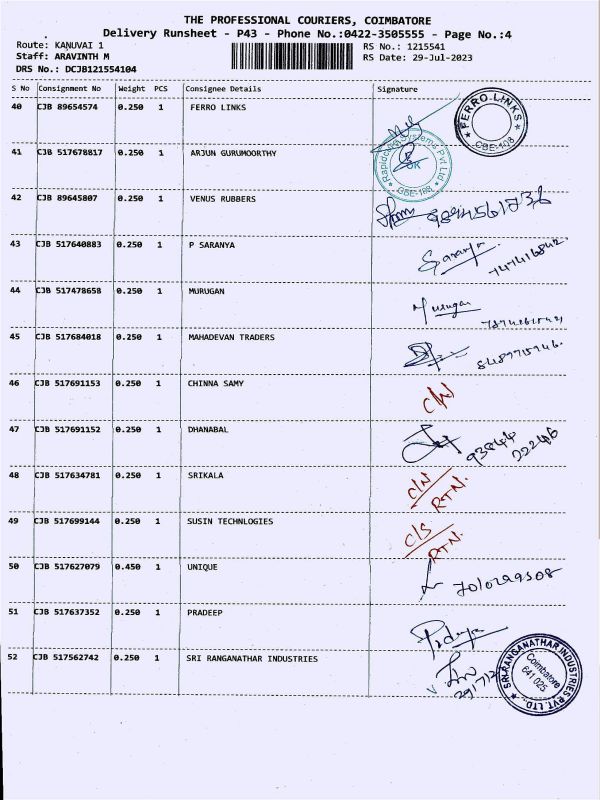 THE PROFESSIONAL COURIERS, COIMBATORE
Delivery Runsheet - P43 - Phone No.:0422-3505555 - Page No.:4
Route: KANUVAI 1 RS No.: 1215541
Staff: ARAVINTH M RS Date: 29-Jul-2023
DRS No.: DCJB121554104
S No Consignment No Weight PCS Consignee Details Signature
40 CJB 89654574 0.250 1 FERRO LINKS
FERRO LINKS
CBE-108
41 CJB 517678817 0.250 1 ARJUN GURUMOORTHY
Systems Pvt Ltd
CBE-108
42 CJB 89645807 0.250 1 VENUS RUBBERS
43 CJB 517640883 0.250 1 P SARANYA
Saranya
747416842
44 CJB 517478658 0.250 1 MURUGAN
Murugan
45 CJB 517684018 0.250 1 MAHADEVAN TRADERS
46 CJB 517691153 0.250 1 CHINNA SAMY C/N
47 CJB 517691152 0.250 1 DHANABAL
93844
22246
48 CJB 517634781 0.250 1 SRIKALA C/N
RTN.
49 CJB 517699144 0.250 1 SUSIN TECHNLOGIES C/S
RTN.
50 CJB 517627079 0.450 1 UNIQUE 7010299508
51 CJB 517637352 0.250 1 PRADEEP
52 CJB 517562742 0.250 1 SRI RANGANATHAR INDUSTRIES
SRI RANGANATHAR INDUSTRIES PVT. LTD.
Coimbatore
641 025